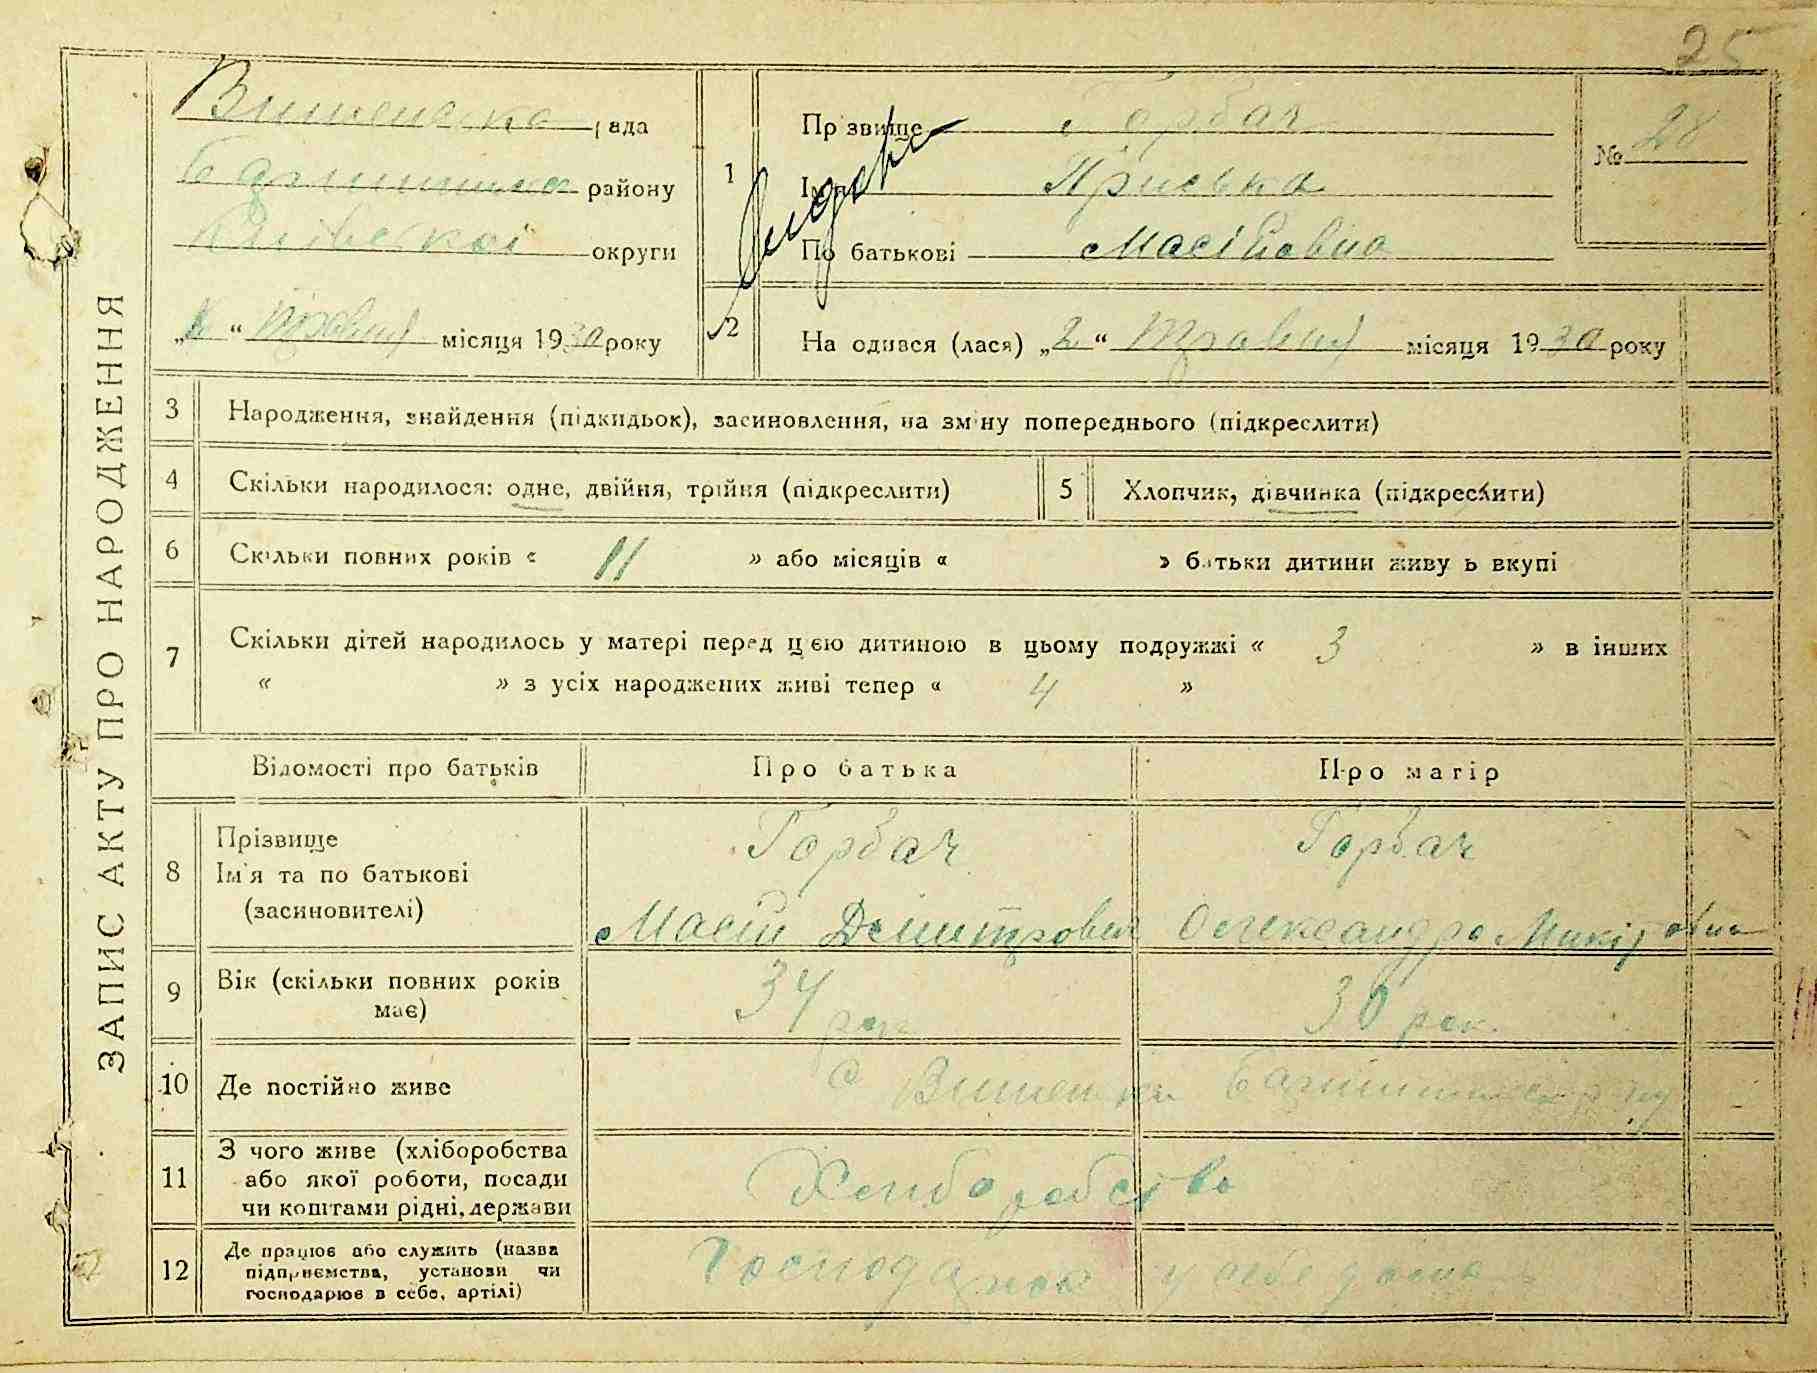 25
ЗАПИС АКТУ ПРО НАРОДЖЕННЯ
Вишенська рада
району
Київської округи
" Травня місяця 1930 року
1
Прізвище Горбач
Ім'я Приська
По батькові Масіївна
№ 28
2
На одився (лася) „2“ Травня місяця 1930 року
3 Народження, знайдення (підкидьок), засиновлення, на зміну попереднього (підкреслити)
4 Скільки народилося: одне, двійня, трійня (підкреслити)
5 Хлопчик, дівчинка (підкреслити)
6 Скільки повних років « 11 » або місяців « » батьки дитини живу ь вкупі
7 Скільки дітей народилось у матері перед цією дитиною в цьому подружжі « 3 » в інших
« » з усіх народжених живі тепер « 4 »
Відомості про батьків Про батька Про матір
8 Прізвище
Ім'я та по батькові
(засиновителі)
Горбач
Масій Демитрович
Горбач
Олександра Микітовна
9 Вік (скільки повних років
має)
34 рок
30 рок.
10 Де постійно живе
с Вишеньки
11 З чого живе (хліборобства
або якої роботи, посади
чи коштами рідні, держави
Хліборобство
12 Де працює або служить (назва
підприємства, установи чи
господарює в себе, артілі)
у себе дома